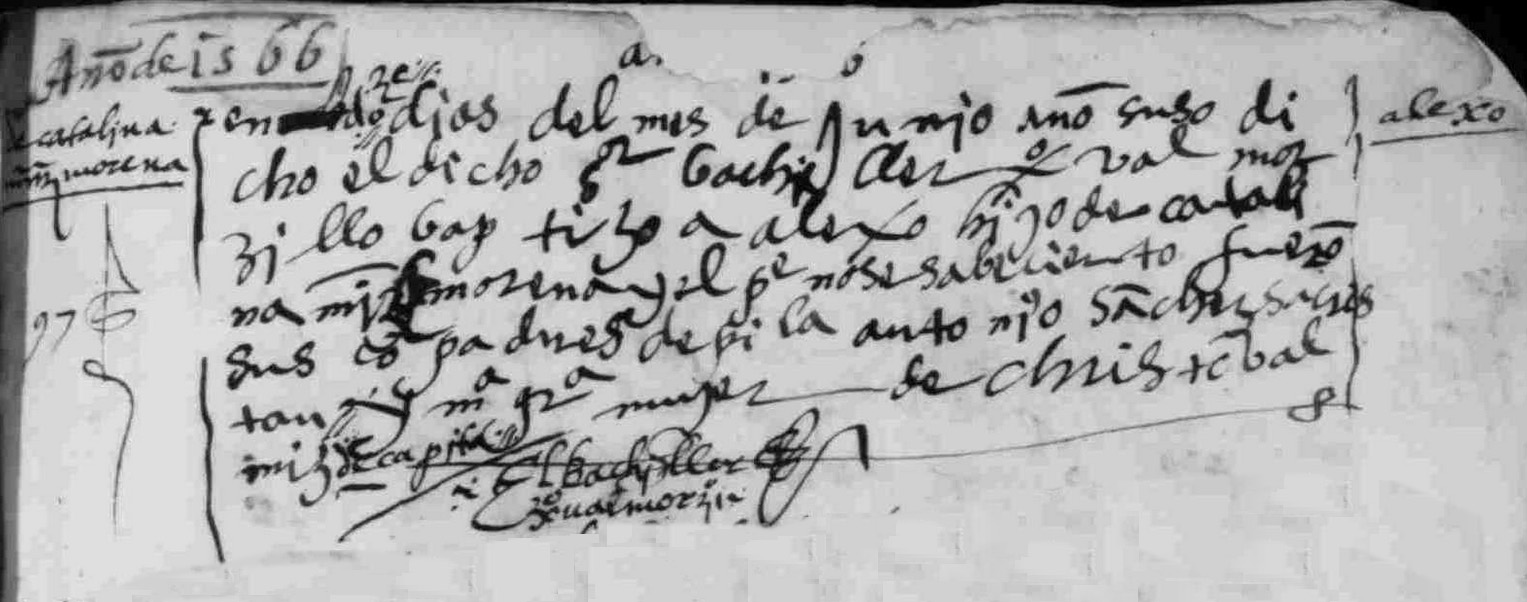 Año de 1566
a. 6
de catalina
miñ morena
97
alexo
en doze dias del mes de Junjo año suso di
cho el dicho sr bachjller xoval mor
zillo baptizo a alexo hijo de catali
na mjn morena y el pe no se sabe cierto fuerō
sus cōpadres de pila antonjo sāchez sacris
tan y ma gra muger de christoval
miz de capilla
El bachiller
xoual morzillo